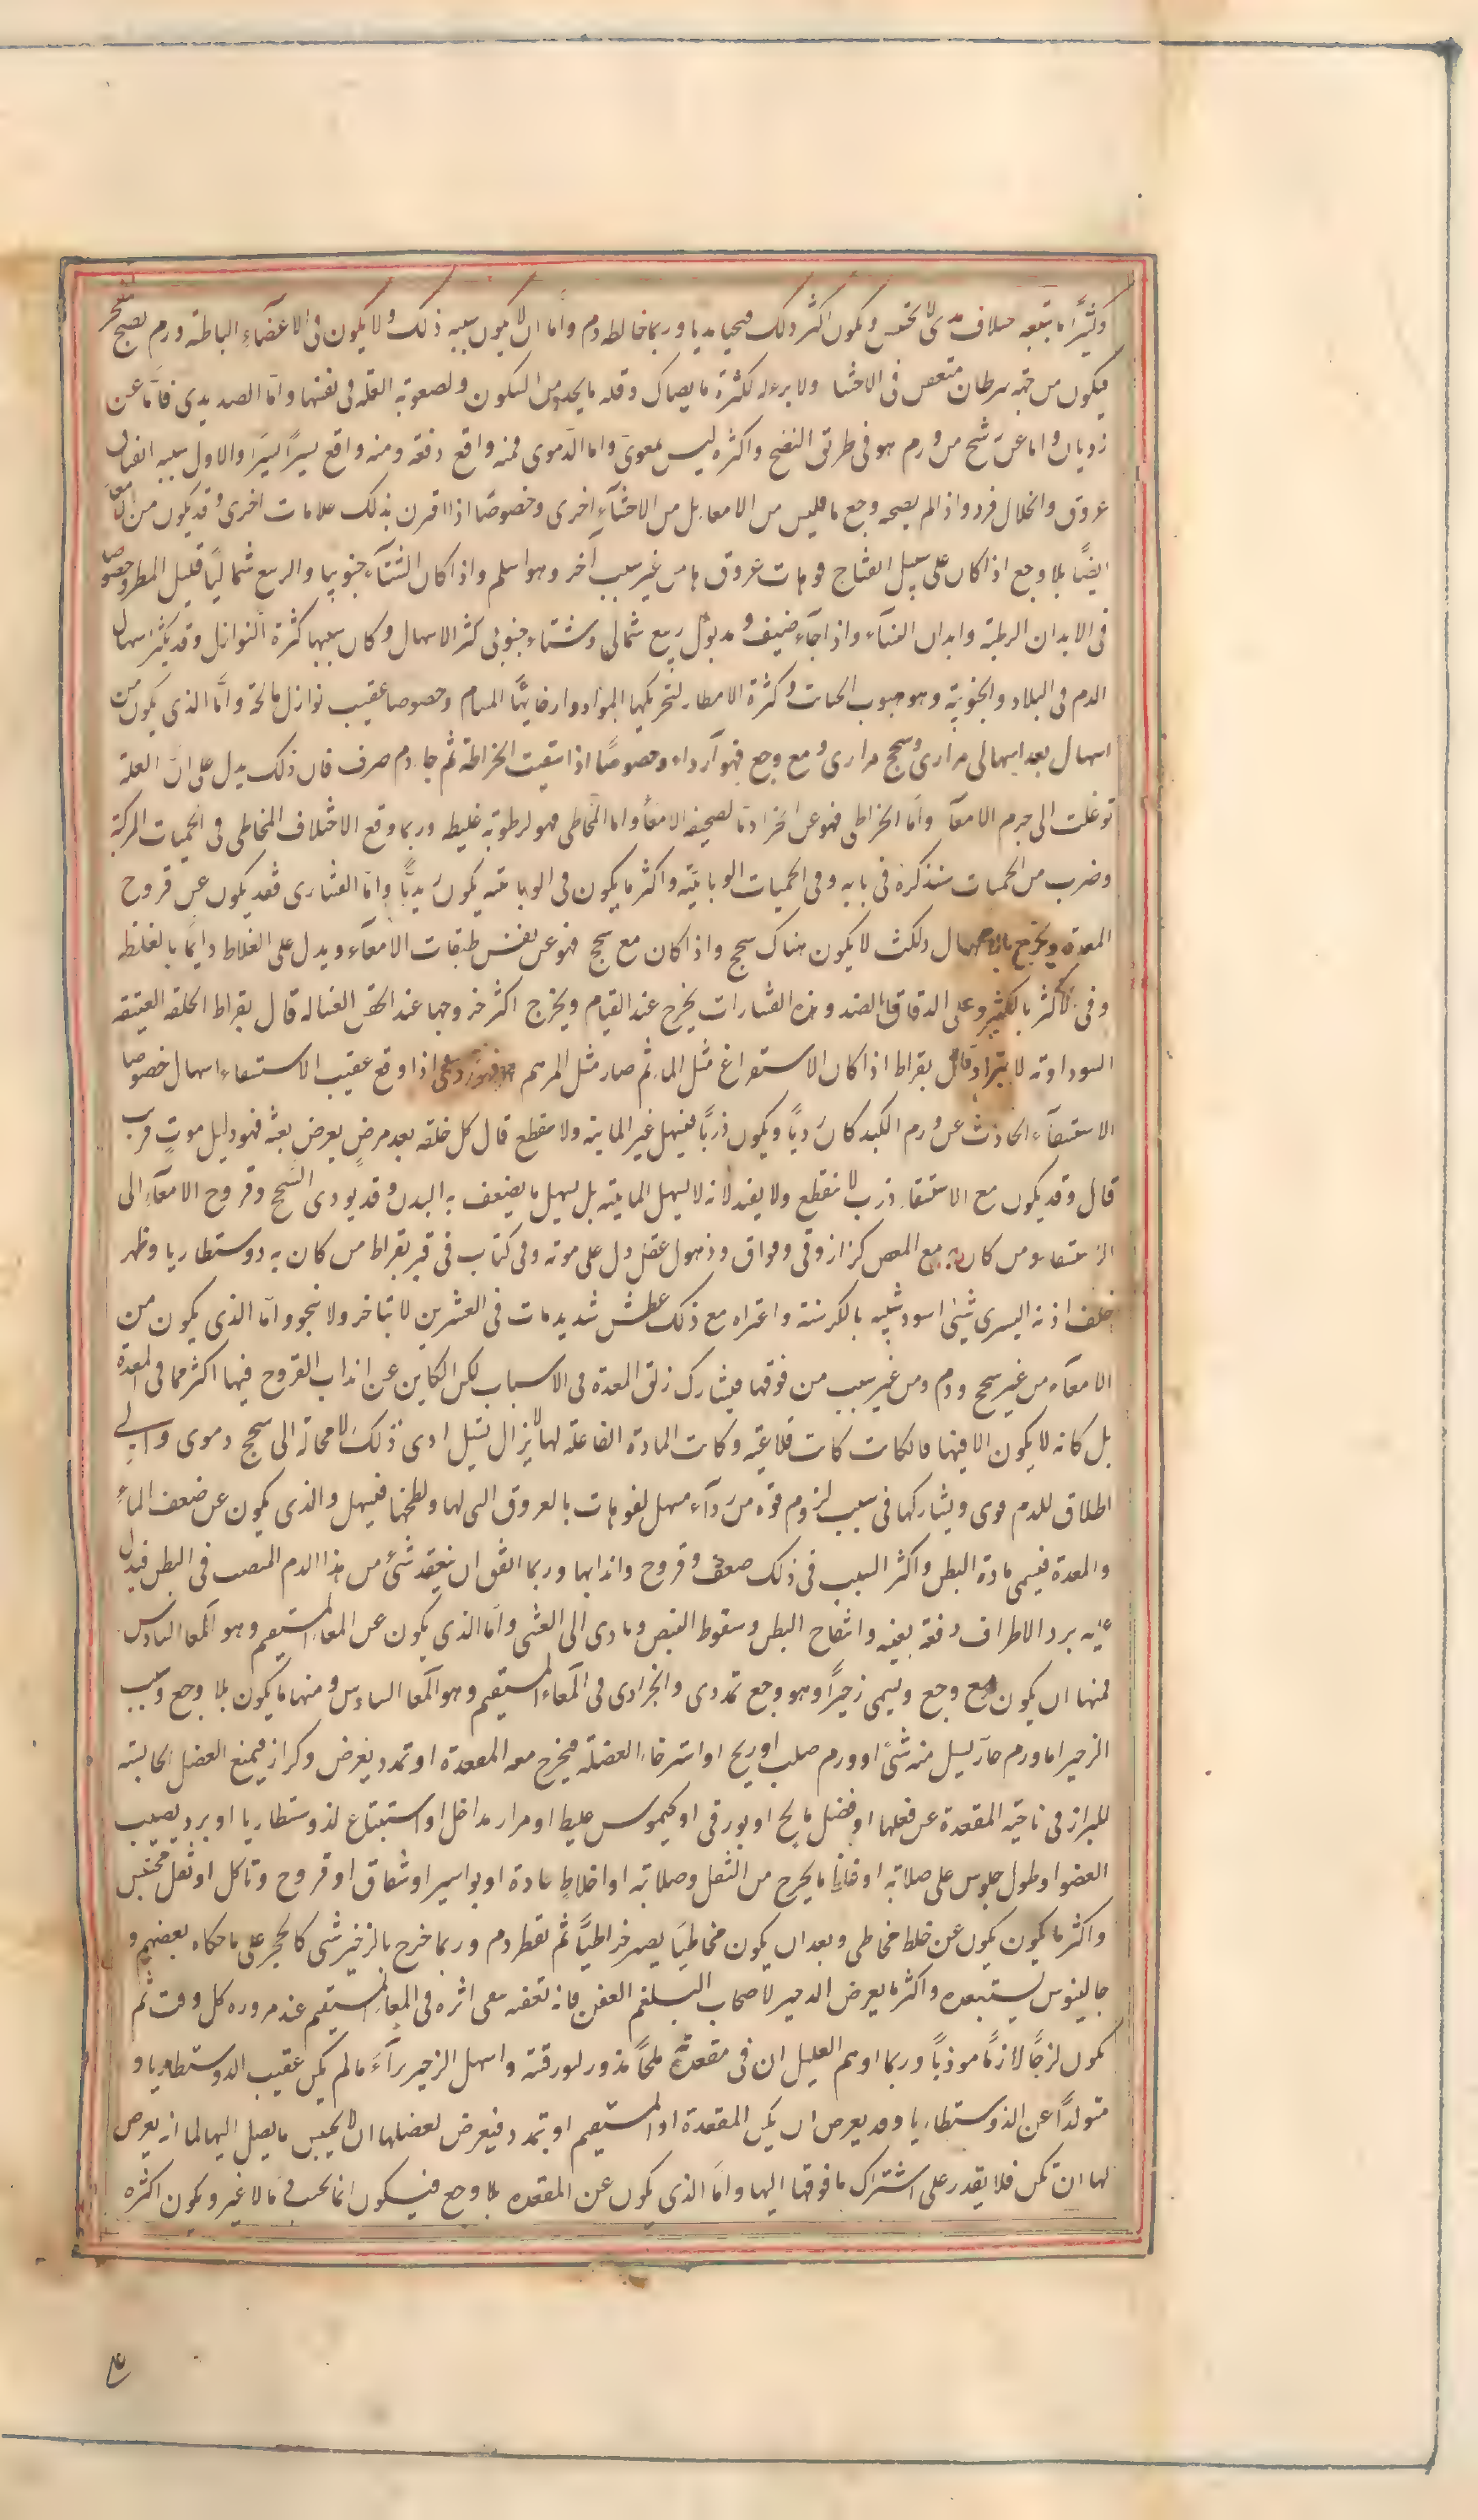 وكثيرا ما يتبعه اختلاف مدى لا تحس ويكون اكثر ذلك قيحيا مديا وربما خالطه دم واما ان لا يكون سببه ذلك ولا يكون فى الاعضآء الباطنة ورم يصح
فيكون من جهة سرطان متعفن فى الاحشا ولا برء له لكثرة ما يصاك وقلة ما يجد من السكون ولصعوبة العلة فى نفسها واما الصديدى فاما عن
ذوبان واما عن ترشح من ورم هو فى طريق النضج واكثره ليس بمعوى واما الدموى فمنه واقع دفعة ومنه واقع يسيرا يسيرا والاول سببه انفتاق
عروق وانحلال فرد واذا لم يصحبه وجع ما فليس من الامعا بل من الاحشآء اخرى وخصوصا اذا اقترن بذلك علامات اخرى وقد يكون من الامعآ
ايضا بلا وجع اذا كان على سبيل انفتاح فوهات عروق ها من غير سبب آخر وهو اسلم واذا كان الشتآء جنوبيا والربيع شماليا قليل المطر وخصوصا
فى الابدان الرطبة وابدان النسآء واذا جآء صيف ومد بول ربيع شمالى وشتاء جنوبى كثر الاسهال وكان سببها كثرة النوازل وقد يكثر اسهال
الدم فى البلاد والجنوبية وهو هبوب الجنات وكثرة الامطار لتحريكها المواد وارخائها المسام وخصوصا عقيب نوازل مالحة واما الذى يكون من
اسهال بعد اسهال مرارى وسحج مرارى ومع وجع فهو ارداء وخصوصا اذا سبقت الخراطة ثم جا دم صرف فان ذلك يدل على ان العلة
توغلت الى جرم الامعآ واما الخراطى فهو عن انجراد ما لصحيفة الامعآ واما المخاطى فهو لرطوبة غليظة وربما وقع الاختلاف المخاطى فى الحميات المركبة
وضرب من الحميات سنذكره فى بابه وفى الحميات الوبائية واكثر ما يكون فى الوبائية يكون زبديا واما القشارى فقد يكون عن قروح
المعدة ويخرج بالاسهال ولكن لا يكون هناك سحج واذا كان مع سحج فهو عن نفس طبقات الامعآء ويدل على الغلاظ دايما بالغلظ
وفى الاكثر بالكثير وعلى الدقاق بالضد وهذه القشارات يخرج عند القيام ويخرج اكثر خروجها عند الحقن الغسالة قال بقراط الخلفة العتيقة
السوداوية لا تبرأ وقال بقراط اذا كان الاستفراغ مثل الما ثم صار مثل المرهم فهو ردى اذا وقع عقيب الاستسقاء اسهال خصوصا
الاستسقآء الحادث عن ورم الكبد كان رديا ويكون ذربا فيسهل غير المائية ولا ينقطع قال كل خلفة بعد مرض يعرض بغتة فهو دليل موت قريب
قال وقد يكون مع الاستسقا ذرب لا ينقطع ولا يفيد لانه لا يسهل المائية بل يسهل ما يضعف به البدن وقد يودى السحج وقروح الامعآء الى
الاستسقا ومن كان به مع المغص كزاز وقى وفواق وذهول عقل دل على موته وفى كتاب فى قبر بقراط من كان به دوسنطاريا وظهر
خلف اذنه اليسرى شيئ اسود شبيه بالكرسنة واعتراه مع ذلك عطش شديد مات فى العشرين لا يتاخر ولا ينجو واما الذى يكون من
الامعآء من غير سحج ودم ومن غير سبب من فوقها فيشارك زلق المعدة فى الاسباب لكن الكاين عن انداب القروح فيها اكثر مما فى المعدة
بل كانه لا يكون الا فيها فان كانت كانت قلاعية وكانت المادة الفاعلة لها لا يزال تسيل ادى ذلك لا محالة الى سحج دموى والى
اطلاق للدم قوى ويشاركها فى سبب لزوم قوة من دآء مسهل لفوهات بالعروق التى لها ولطحها فيسهل والذى يكون عن ضعف الماء
والمعدة فيسمى مادة البطن واكثر السبب فى ذلك ضعف وقروح واندابها وربما اتفق ان ينعقد شئ من هذا الدم المنصب فى البطن فيدل
عليه برد الاطراف دفعة بغتة وانتفاخ البطن وسقوط النبض وما دى الى الغشى واما الذى يكون عن المعا المستقيم وهو المعا السادس
فمنها ان يكون مع وجع ويسمى زحيرا وهو وجع تمددى وانجرادى فى المعاء المستقيم وهو المعا السادس ومنها ما يكون بلا وجع وسبب
الزحير اما ورم حار يسيل منه شئ او ورم صلب او ريح او استرخاء العضلة فيخرج معه المقعدة او تمدد يعرض وكزاز فيمنع العضل الحابسة
للبراز فى ناحية المقعدة عن فعلها او فضل مالح او بورقى او كيموس غليظ او مرار مداخل او استتباع لذوسنطاريا او برد يصيب
العضو او طول جلوس على صلابة او غلظ ما يخرج من الثفل وصلابته او اخلاط حادة او بواسير او شقاق او قروح وتاكل او ثفل محتبس
واكثر ما يكون يكون عن خلط مخاطى وبعد ان يكون مخاطيا يصير خراطيا ثم نقط دم وربما خرج بالزحير شئ كالحجر على ما حكاه بعضهم و
جالينوس يستبعده واكثر ما يعرض الزحير لاصحاب البلغم العفن فانه تعفنه يبقى اثره فى المعا المستقيم عند مروره كل وقت ثم
يكون لزجا لازما موذيا وربما اوهم العليل ان فى مقعدته ملحا مذرور لبورقيته واسهل الزحير برآء ما لم يكن عقيب الدوسنطاريا و
متولدا عن الذوسنطاريا وقد يعرض ان يكن المقعدة او المستقيم او بتمدد فيعرض لعضلها ان لا يحبس ما يصل اليها لما انه يعرض
لها ان تكن فلا يقدر على اشتراك ما فوقها اليها واما الذى يكون عن المقعدة بلا وجع فيكون انما يحسب فى ما لا غير ويكون اكثره